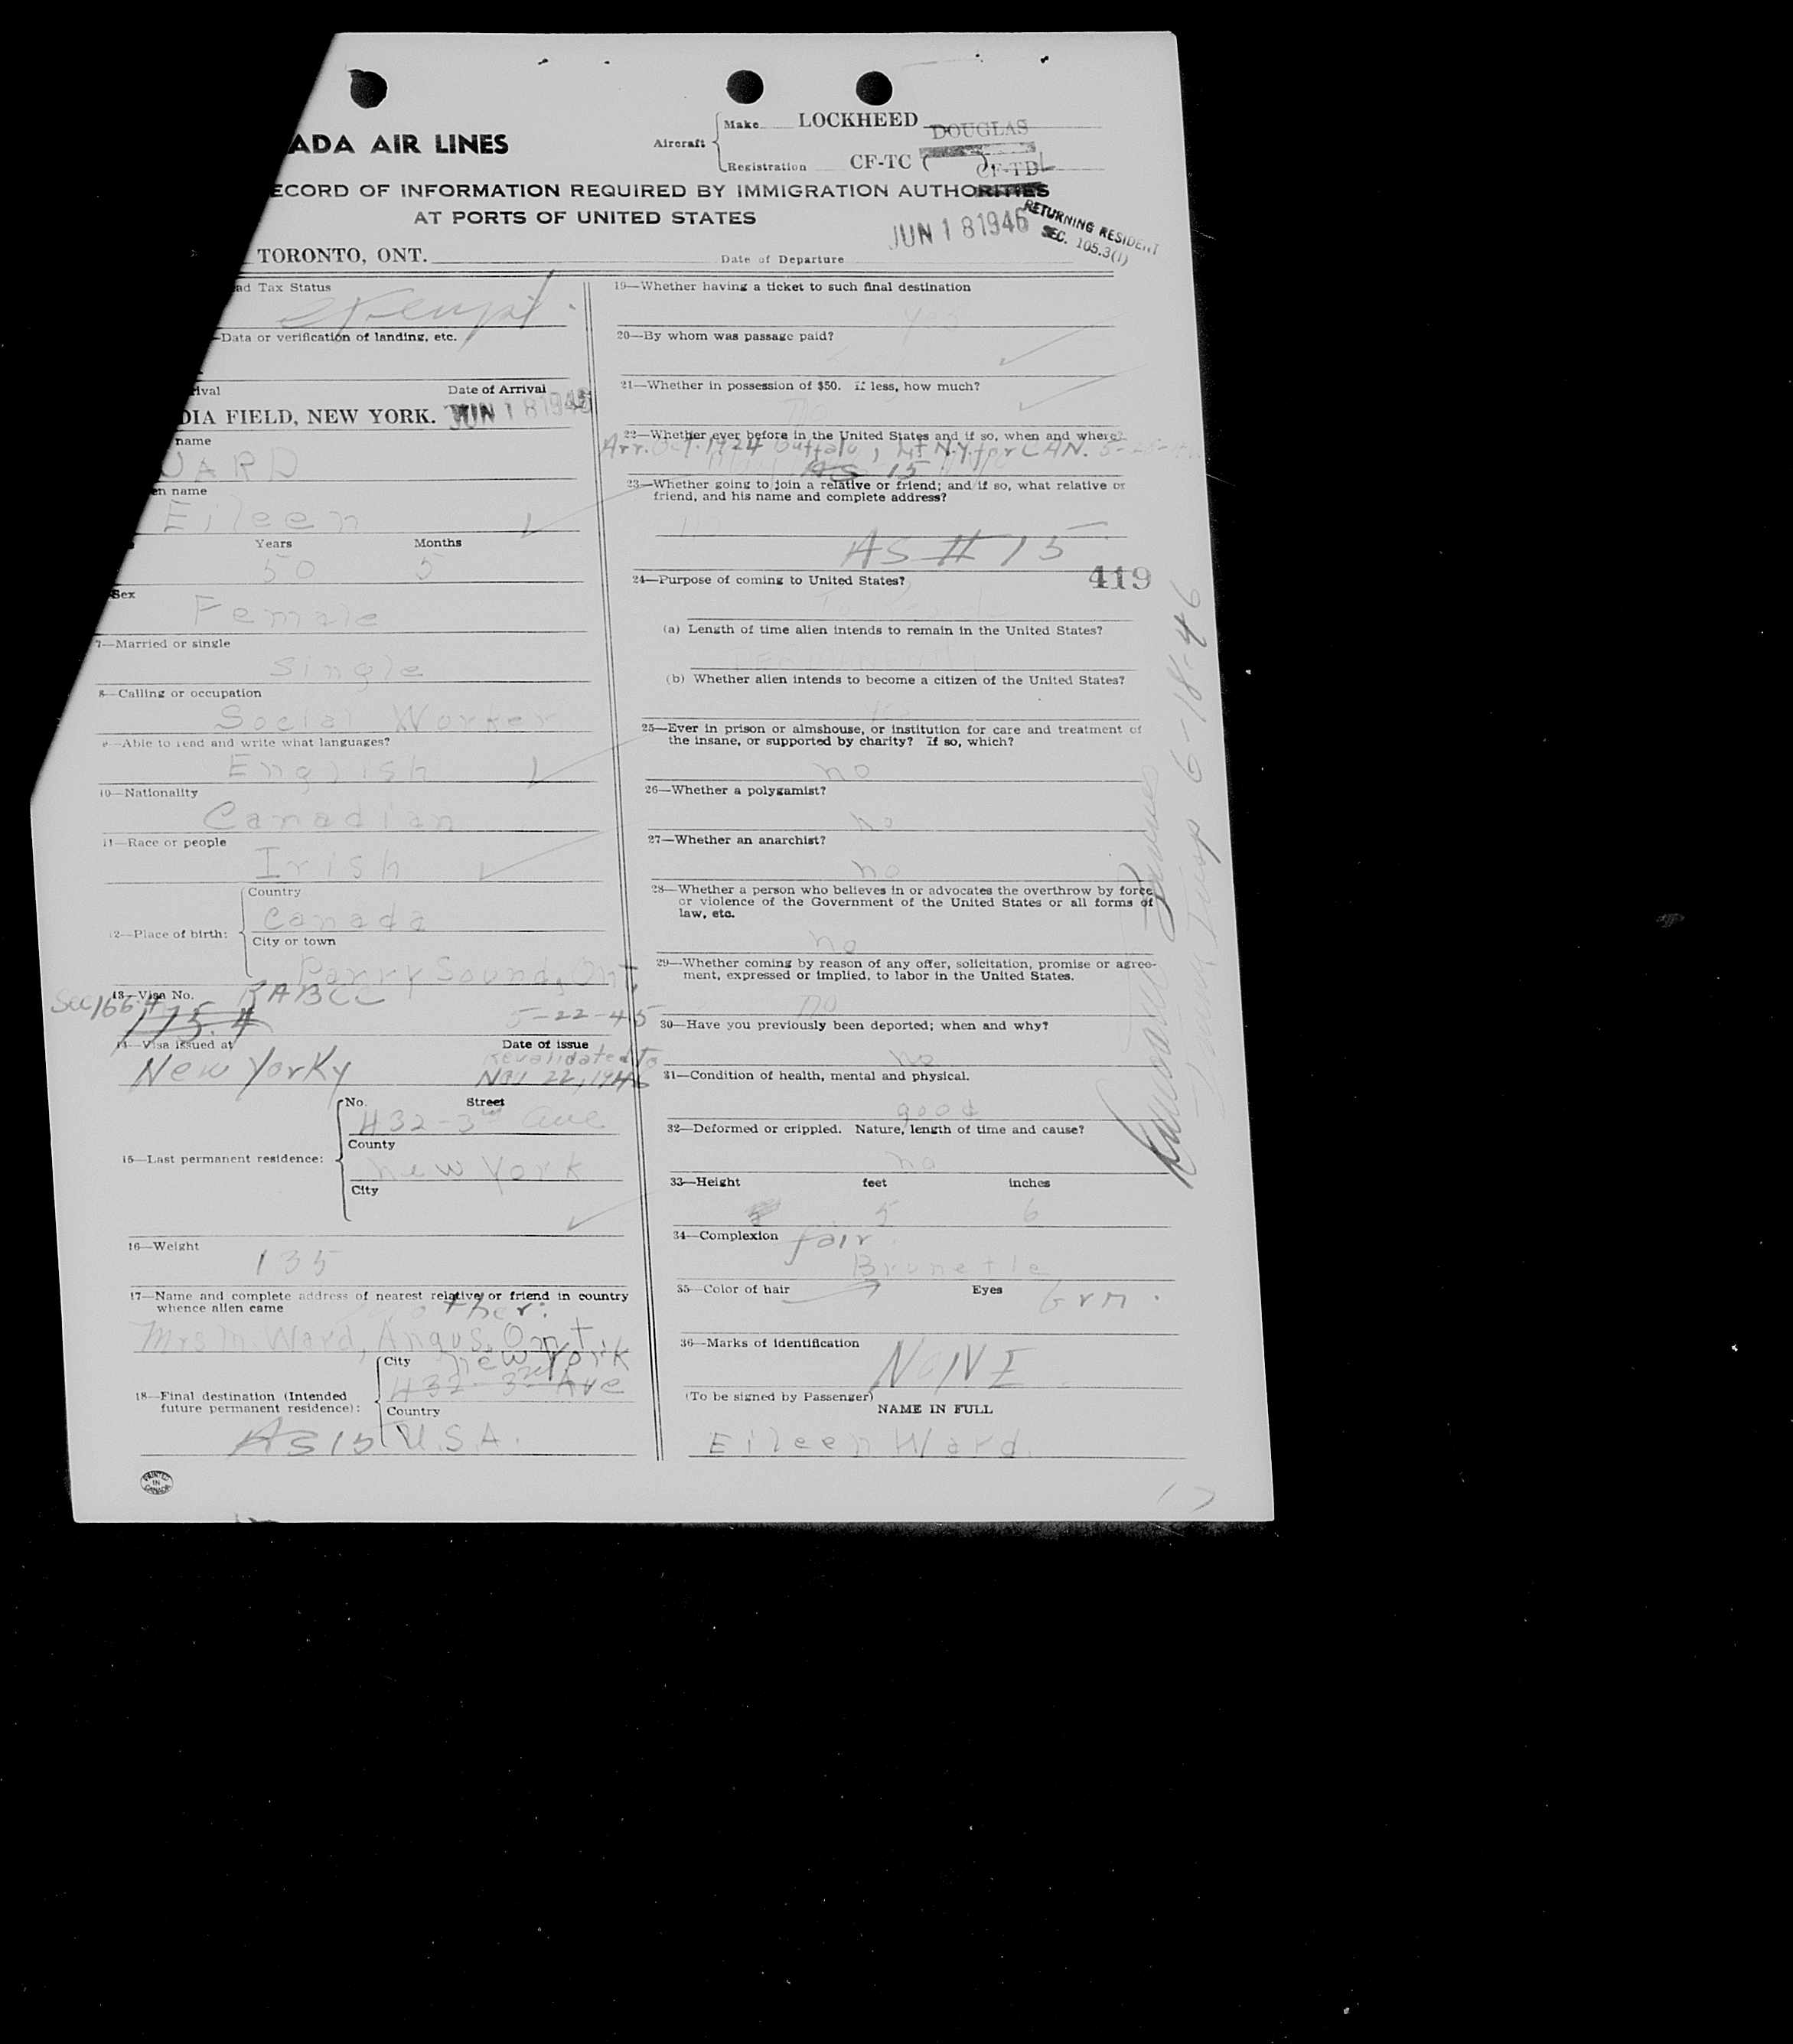 ADA AIR LINES
Aircraft
Make LOCKHEED DOUGLAS
Registration CF-TC ( ). CF-TDL
ECORD OF INFORMATION REQUIRED BY IMMIGRATION AUTHORITIES
AT PORTS OF UNITED STATES
JUN 18 1946
RETURNING RESIDENT
SEC. 105.3(1)
TORONTO, ONT. Date of Departure
ad Tax Status
exempt.
—Data or verification of landing, etc.
rival Date of Arrival
DIA FIELD, NEW YORK. JUN 18 1946
name
WARD
en name
Eileen
Years Months
50 5
Sex
Female
7—Married or single
Single
8—Calling or occupation
Social Worker
9—Able to read and write what languages?
English
10—Nationality
Canadian
11—Race or people
Irish
12—Place of birth:
Country
Canada
City or town
Parry Sound, Ont.
13—Visa No. RABCC
Sec 166.4
175.4
5-22-45
14—Visa issued at Date of issue
New York Revalidated to
Nov 22, 1946
15—Last permanent residence:
No. Street
432-3rd Ave
County
New York
City
16—Weight
135
17—Name and complete address of nearest relative or friend in country
whence alien came
other:
Mrs M. Ward, Angus, Ont.
18—Final destination (Intended
future permanent residence):
City New York
432-3rd Ave
Country
AS 15 U.S.A.
PRINTED
IN
CANADA
19—Whether having a ticket to such final destination
yes
20—By whom was passage paid?
21—Whether in possession of $50. If less, how much?
no
22—Whether ever before in the United States and if so, when and where?
Arr. Oct. 1924 Buffalo, Lft N.Y. for CAN.
AS 15
23—Whether going to join a relative or friend; and if so, what relative or
friend, and his name and complete address?
no
AS # 15
419
24—Purpose of coming to United States?
(a) Length of time alien intends to remain in the United States?
(b) Whether alien intends to become a citizen of the United States?
25—Ever in prison or almshouse, or institution for care and treatment of
the insane, or supported by charity? If so, which?
no
26—Whether a polygamist?
no
27—Whether an anarchist?
no
28—Whether a person who believes in or advocates the overthrow by force
or violence of the Government of the United States or all forms of
law, etc.
no
29—Whether coming by reason of any offer, solicitation, promise or agree-
ment, expressed or implied, to labor in the United States.
no
30—Have you previously been deported; when and why?
no
31—Condition of health, mental and physical.
good
32—Deformed or crippled. Nature, length of time and cause?
no
33—Height feet inches
5 6
34—Complexion fair
Brunette
35—Color of hair Eyes Grn.
36—Marks of identification
NONE
(To be signed by Passenger)
NAME IN FULL
Eileen Ward.
6-18-46